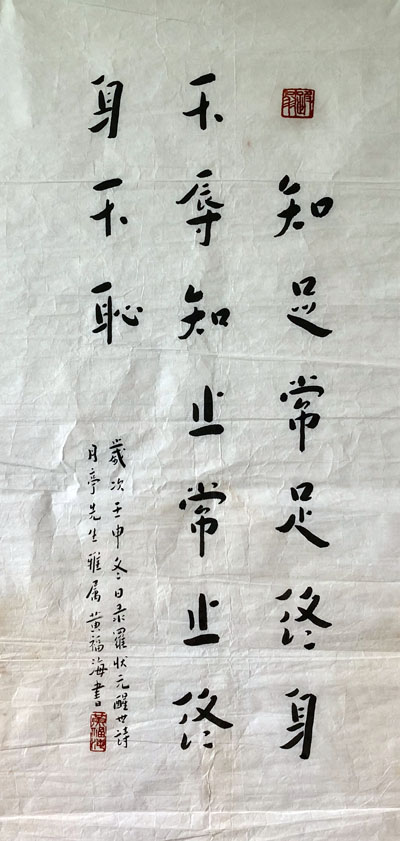 知足常足終身
不辱知止常止終
身不恥
歲次壬申冬日录羅狀元醒世詩
月亭先生雅属黄福海書
黄福海